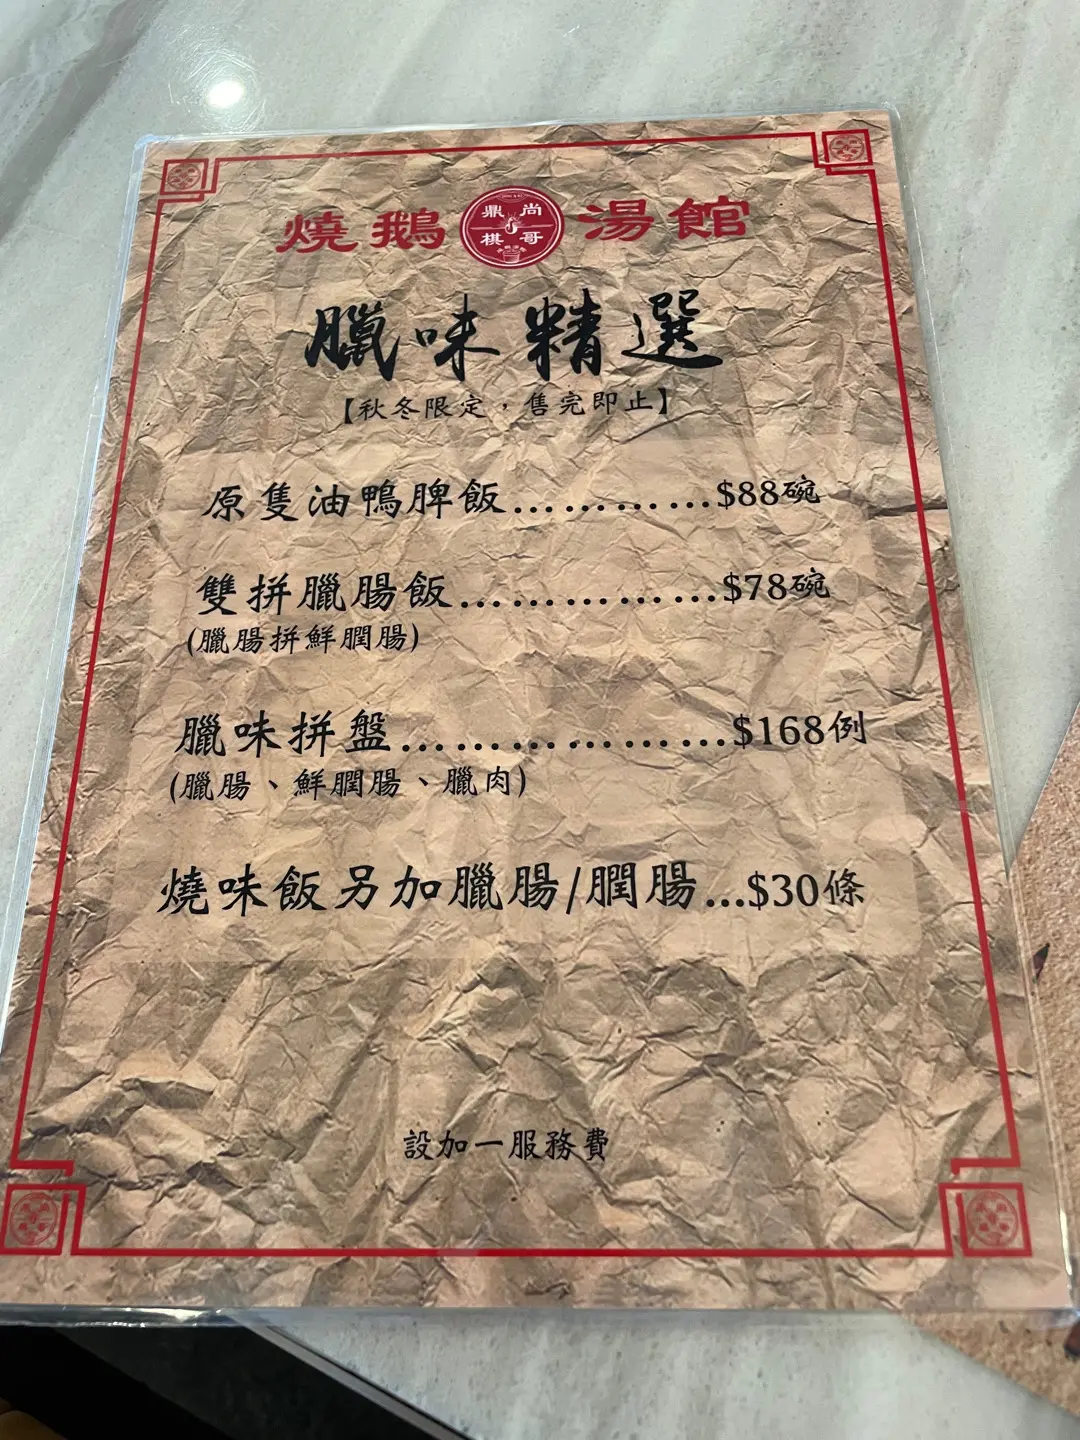 燒鵝 湯館
鼎尚
棋哥
臘味精選
【秋冬限定，售完即止】
原隻油鴨脾飯…………$88碗
雙拼臘腸飯……………$78碗
(臘腸拼鮮膶腸)
臘味拼盤………………$168例
(臘腸、鮮膶腸、臘肉)
燒味飯另加臘腸/膶腸…$30條
設加一服務費